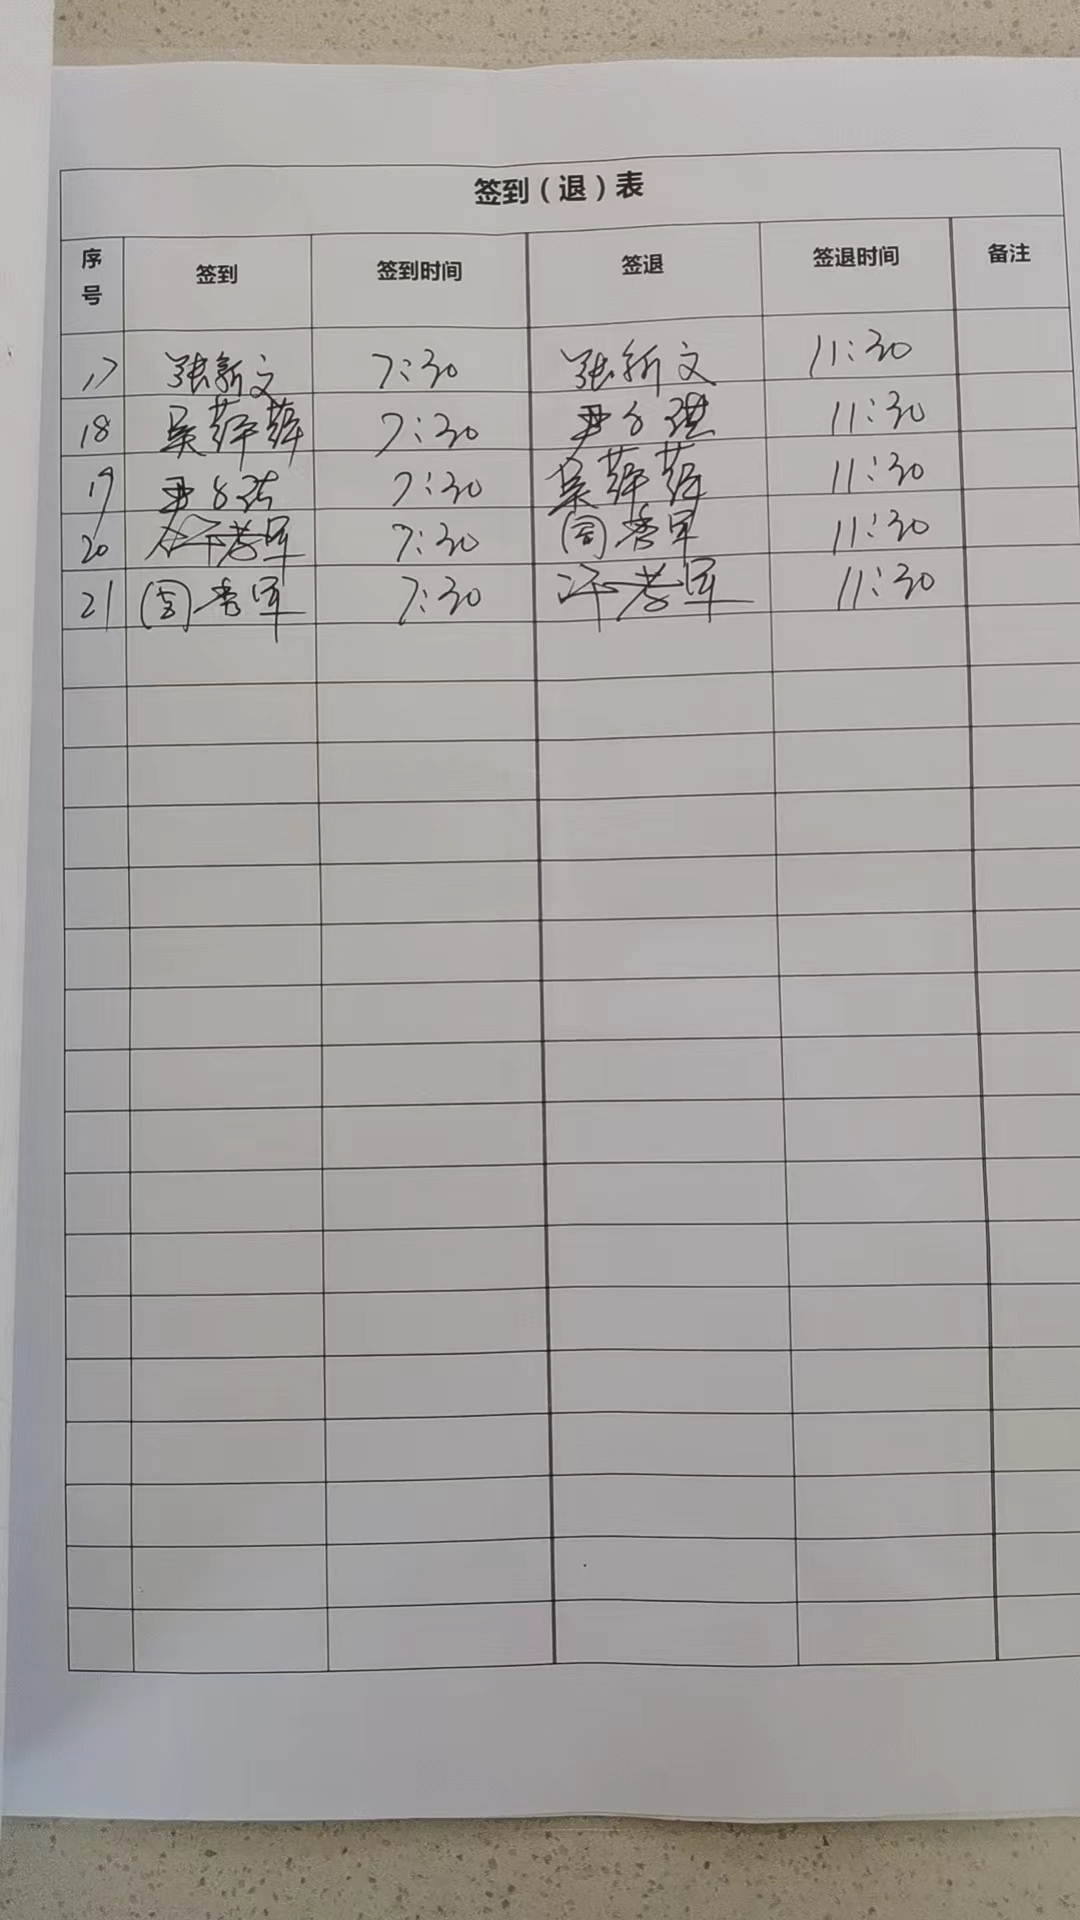 签到（退）表
序号 签到 签到时间 签退 签退时间 备注
17 张新文 7:30 张新文 11:30
18 吴萍萍 7:30 11:30
19 7:30 吴萍萍 11:30
20 7:30 周秀军 11:30
21 周秀军 7:30 11:30